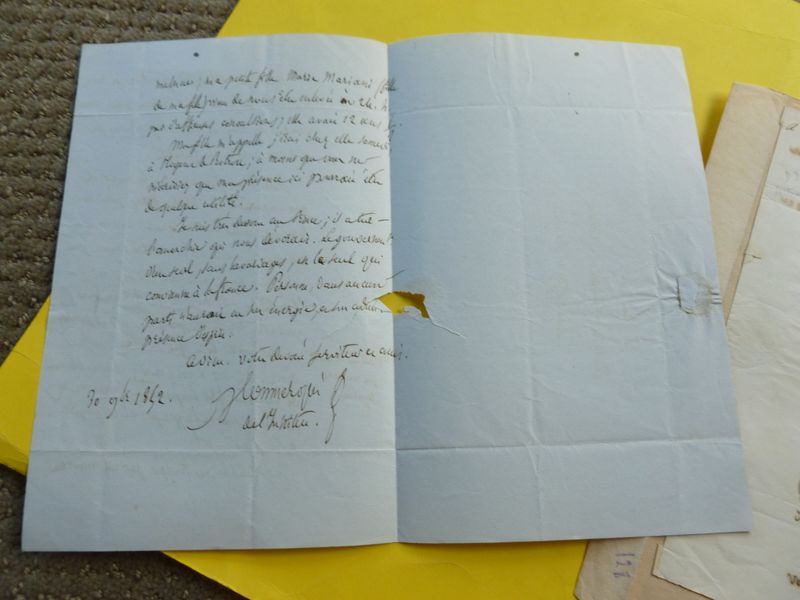 malheur; ma petite fille Marie Marjani (fille
de ma fille) vient de nous être enlevée en 24 h.
par d'affreuses convulsions; elle avait 12 ans ½
Ma fille m'appelle; j'irai chez elle samedi
à; à moins que vous ne
que ma présence ici pourrait être
de quelque utilité.
Je suis très dévoué au Prince; il a tué
l'anarchie qui nous dévorait. Le gouvernemt
d'un seul, sans bavardages, est le seul qui
convienne à la France. Personne, dans aucun
parti n'aurait eu son énergie, et son admir.
présence d'esprit.
adieu. votre dévoué serviteur et ami.
30 9bre 1852.
de l'Institut.
121